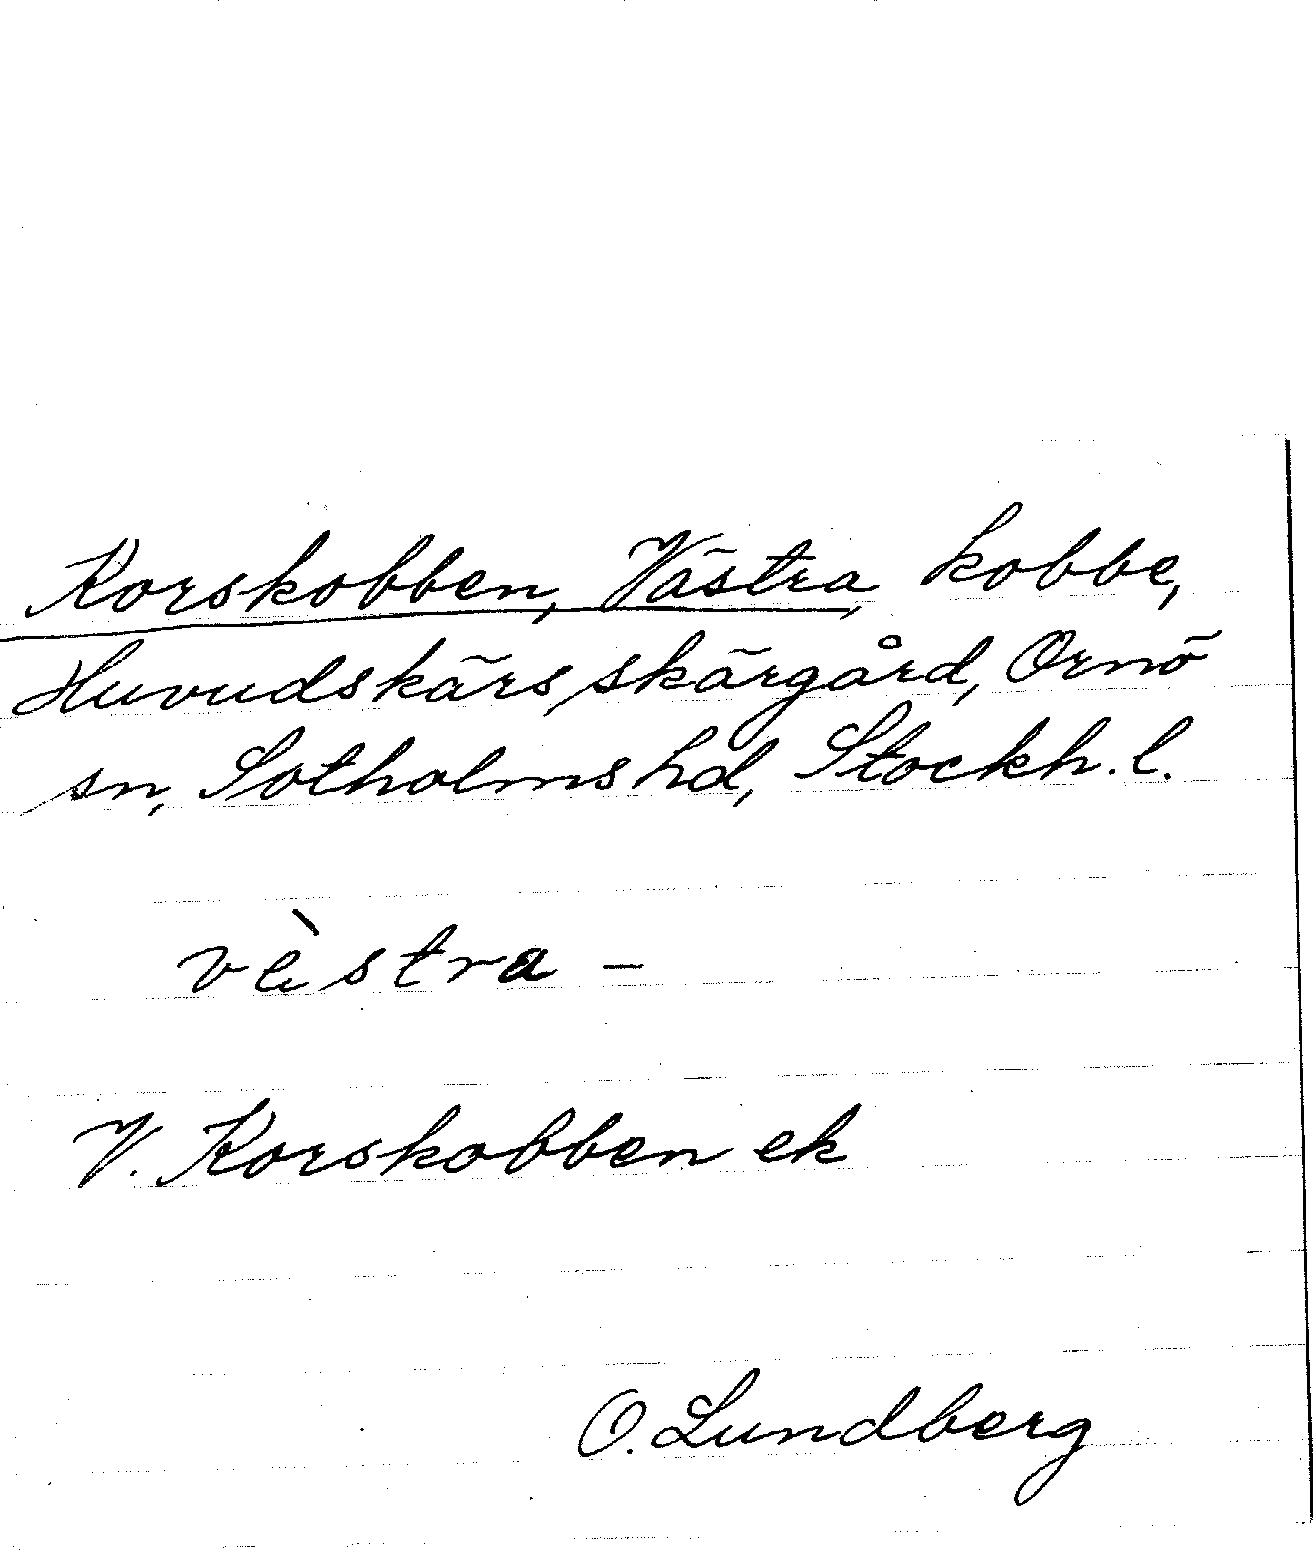 Korskobben, Västra, kobbe,
Huvudskärs skärgård, Ornö
sn, Sotholms hd, Stockh. l.
vèstra –
V. Korskobben ek
O. Lundberg